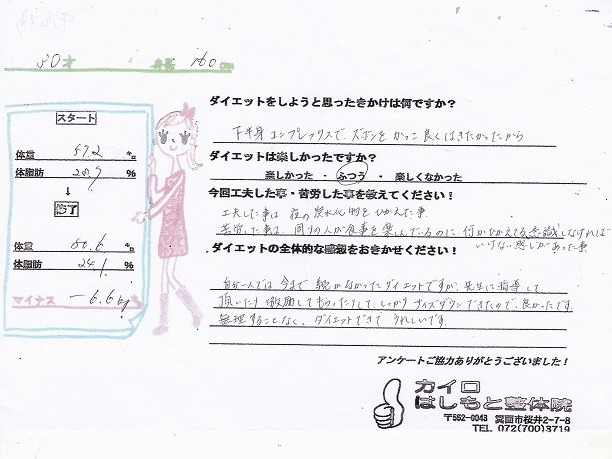 30才 身長 160cm
スタート
体重 57.2 %
体脂肪 28.7 %
↓
終了
体重 50.6 %
体脂肪 24.1 %
マイナス -6.6kg
ダイエットをしようと思ったきかけは何ですか?
下半身コンプレックスで、ズボンをかっこ良くはきたかったから
ダイエットは楽しかったですか?
楽しかった ・ ふつう ・ 楽しくなかった
今回工夫した事・苦労した事を教えてください!
工夫した事は 夜の炭水化物をひかえた事
苦労した事は、周りの人が食事を楽しんでいるのに 何かひかえる意識しなければ
いけない感じがあった事
ダイエットの全体的な感想をおきかせください!
自分一人では 今まで 続かなかったダイエットですが、先生に指導して
頂いたり 激励してもらったりして、しっかりサイズダウンできたので、良かったです
無理することなく、ダイエットできて うれしいです
アンケートご協力ありがとうございました!
カイロ
はしもと整体院
〒562-0043 箕面市桜井2-7-8
TEL 072(700)3719